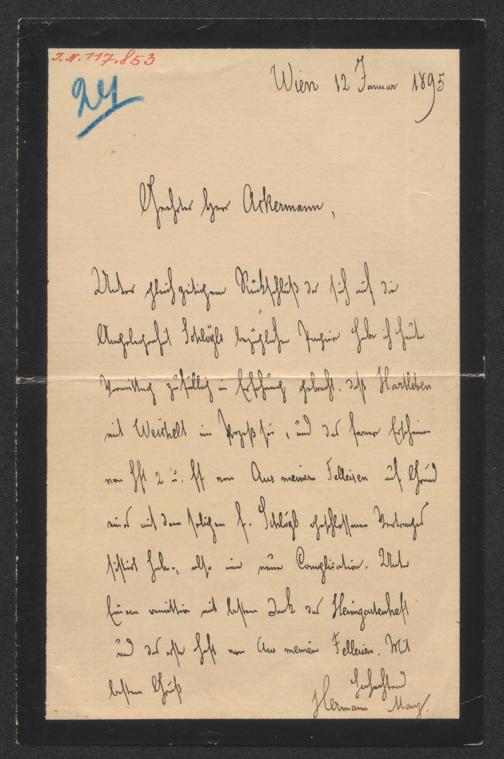 I.N. 117.853
24
Wien 12 Januar 1895
Geehrter Herr Ackermann,
Unter gleichzeitigem Rückschluß der sich auf die
Angelegenheit Schlögls bezüglichen Papiere habe ich heute
Vormittag zufällig in Erfahrung gebracht, daß Hartleben
mit Weichelt im Prozeß sei, und das fernere Erscheinen
von Hft 2 u. ff von Aus meinem Felleisen auf Grund
eines mit dem seligen F. Schlögl geschlossenen Vertrages
sistirt habe, also eine neue Complication. Unter
Einem mit bestem Dank das Heimgartenheft
und das erste Heft von Aus meinem Felleisen. Mit
bestem Gruß
Hochachtend
Hermann